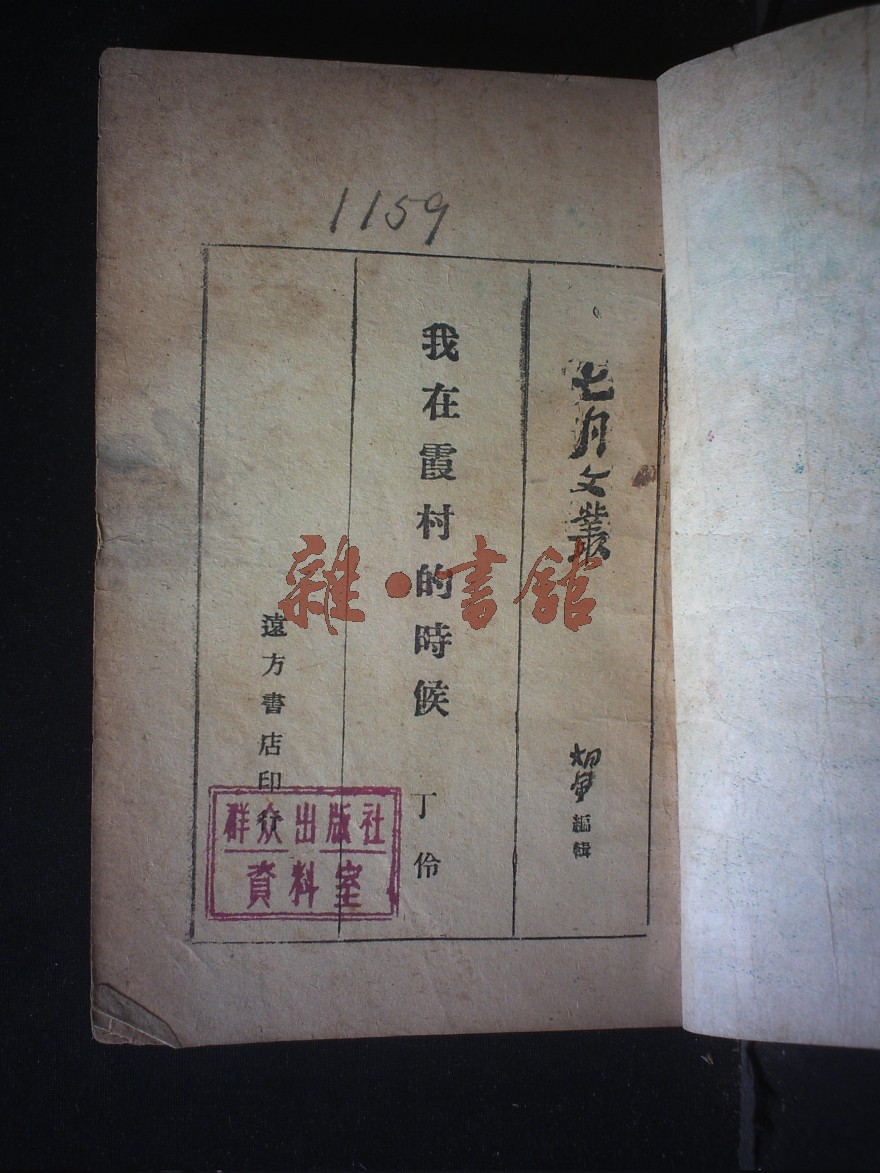 1159
七月文叢
胡風編輯
我在霞村的時候
丁伶
遠方書店印
群众出版社
資料室
雜·書館